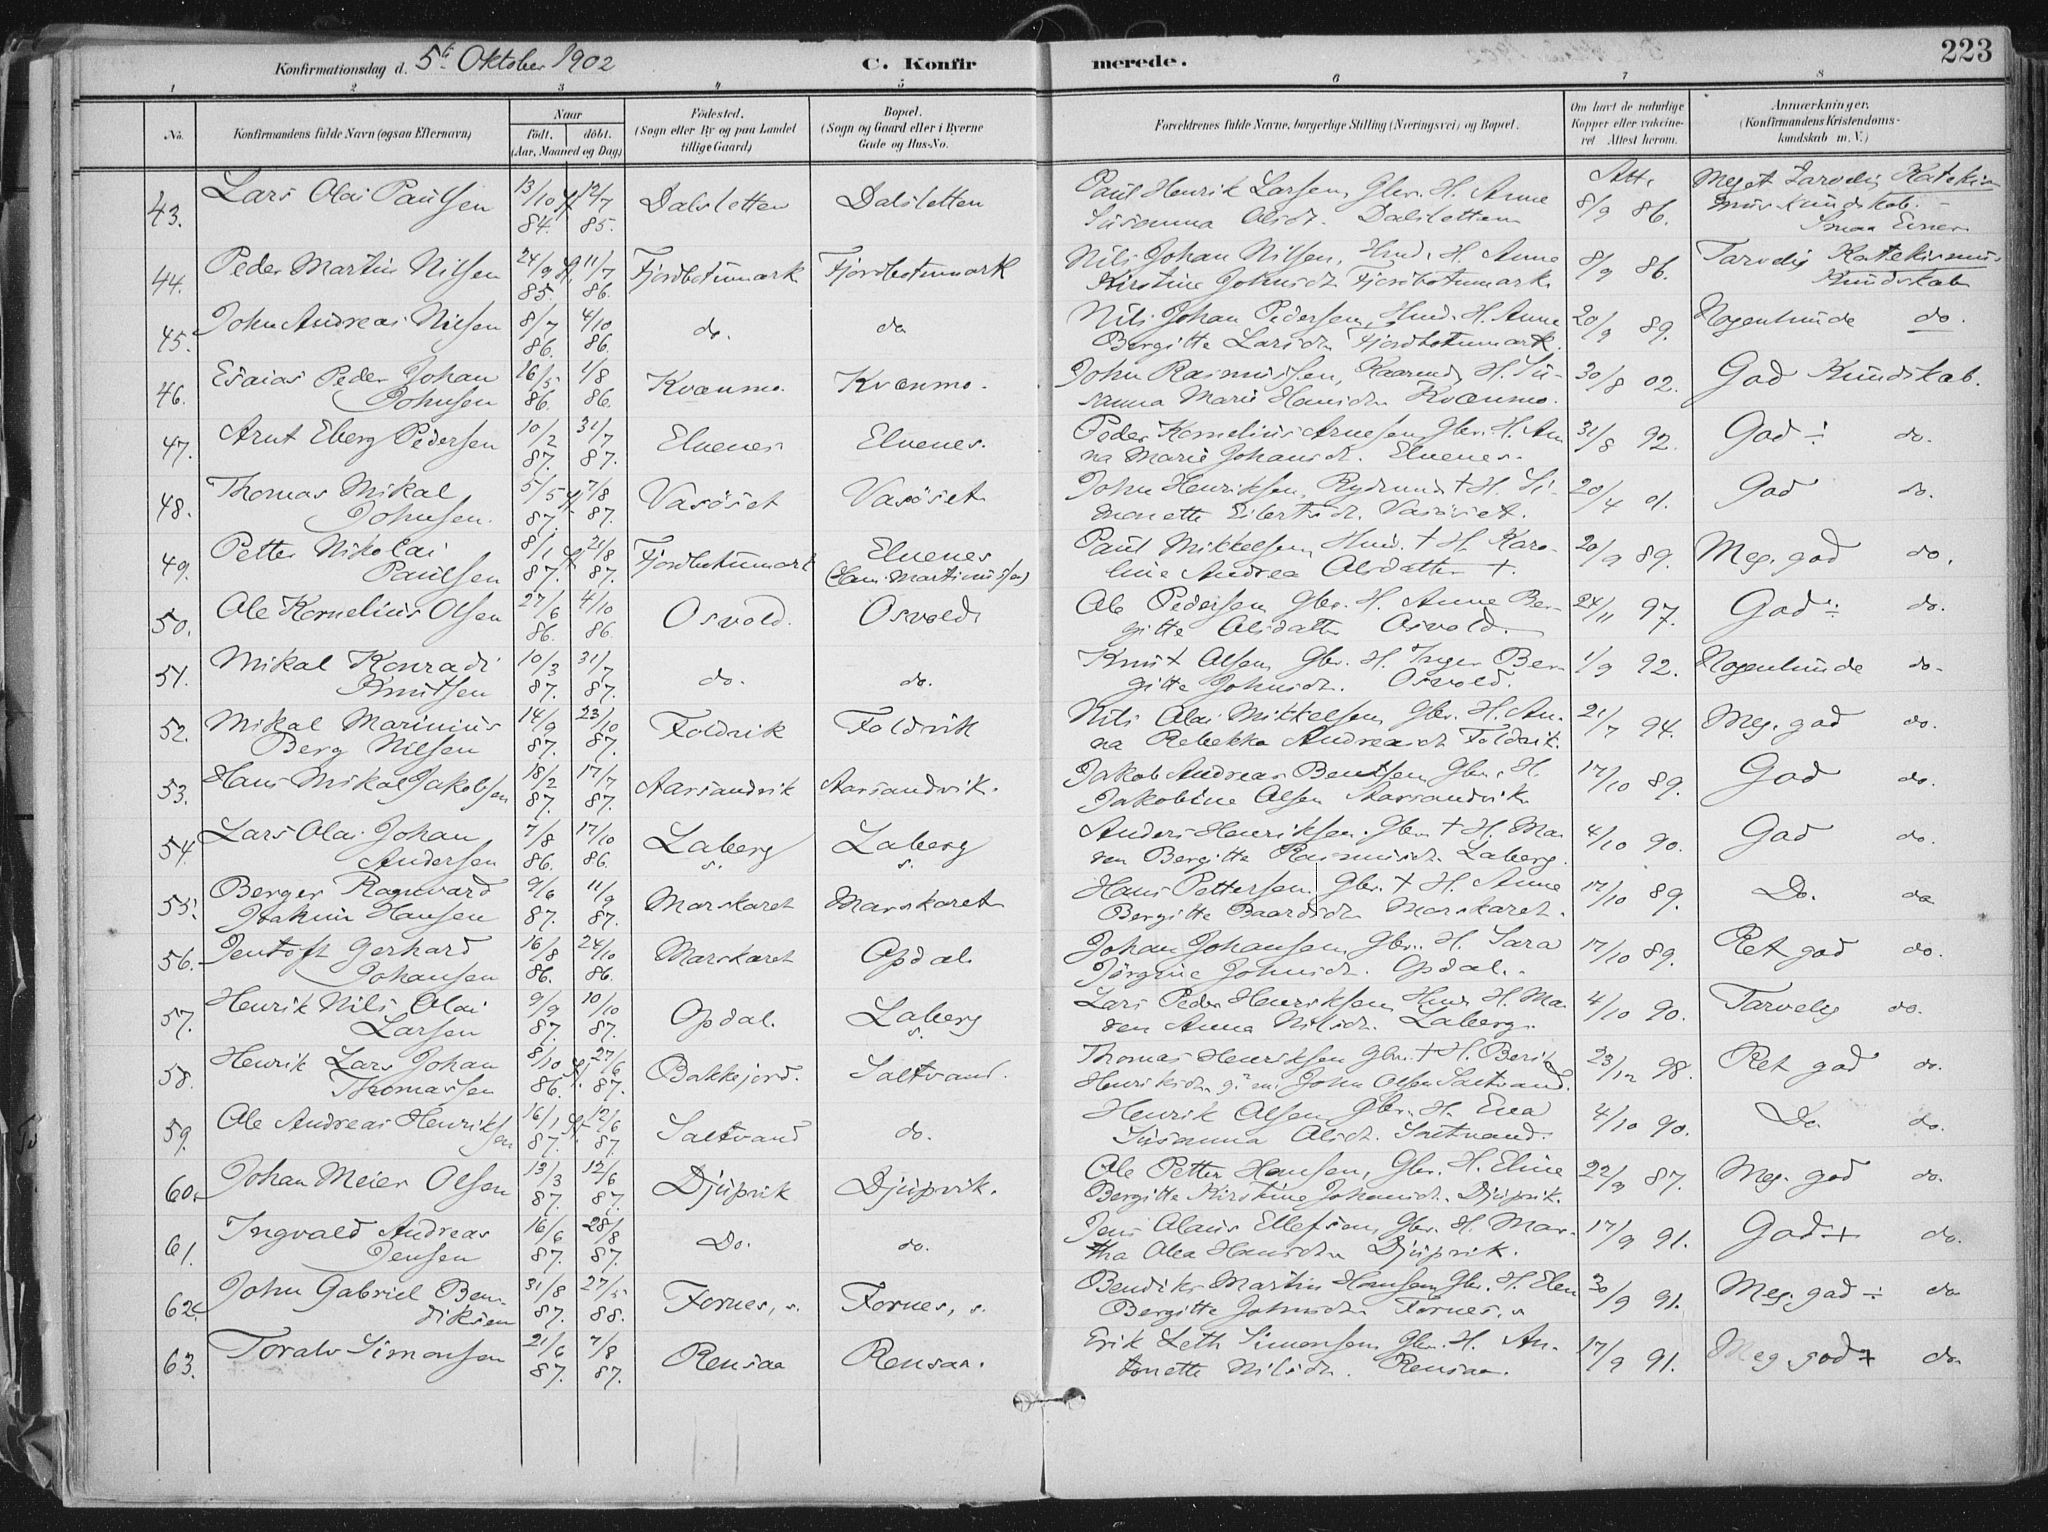 Konfirmationsdag d. 5te Oktober 1902 C. Konfirmerede. 223
1 2 3 4 5 6 7 8
No. Konfirmandens fulde Navn (ogsaa Efternavn) Naar født. døbt. (Aar, Maaned og Dag) Födested. (Sogn eller By og paa Landet tillige Gaard) Bopæl. (Sogn og Gaard eller i Byerne Gade og Hus-No. Forældrenes fulde Navne, borgerlige Stilling (Næringsvei) og Bopæl. Om havt de naturlige Kopper eller vakcineret Attest herom. Anmærkninger. (Konfirmandens Kristendomskundskab m. V.)
43. Lars Olai Paulsen 13/10 84. 12/7 85. Dalsletten Dalsletten Paul Henrik Larsen, Gbr. H. Anne Susanna Olsdt. Dalsletten Att. 8/9 86. Meget Tarvelig Katekismuskundskab.
44. Peder Martin Nilsen 24/9 85. 11/7 86. Fjordbotnmark Fjordbotnmark Nils Johan Nilsen, Hmd. H. Anne Kirstine Johnsdt. Fjordbotnmark. 8/9 86. Tarvelig Katekismus Kundskab
45. John Andreas Nilsen 8/7 86. 4/10 86. do. do Nils Johan Pedersen, Hmd. H. Anne Bergitte Larsdt. Fjordbotnmark. 20/9 89. Nogenlunde do.
46. Esaias Peder Johan Johnsen 26/5 86. 1/8 86. Kvænmo. Kvænmo. John Rasmussen, Kaarmd, H. Susanna Marie Hansdt. Kvænmo. 30/8 02. God Kundskab.
47. Arnt Eberg Pedersen 10/2 87. 31/7 87. Elvenes Elvenes. Peder Kornelius Arnesen, Gbr. H. Anna Marie Johansdt. Elvenes. 31/8 92. God ÷ do.
48. Thomas Mikal Johnsen. 5/5 87. 7/8 87. Vasöset Vasöset John Henriksen, Rydmnd + H. Simonette Eilertsdt. Vasöset. 20/4 01. God do.
49. Petter Nikolai Paulsen 8/1 87. 21/8 87. Fjordbotnmark Elvenes Paul Mikkelsen, Hmd. + H. Karoline Andrea Olsdatter +. 20/9 89. Meg. god do.
50. Ole Kornelius Olsen 27/6 86. 4/10 86. Osvold. Osvold Ole Pedersen Gbr. H. Anne Bergitte Olsdatter Osvold. 24/11 97. God ÷ do.
51. Mikal Konradi Knutsen 10/3 87. 31/7 87. do. do. Knut Olsen, Gbr. H. Inger Bergitte Johnsdt. Osvold. 1/9 92. Nogenlunde do.
52. Mikal Marinius Berg Nilsen 14/9 87. 23/10 87. Foldvik Foldvik Nils Olai Mikkelsen, Gbr. H. Anna Rebekka Andreasdt. Foldvik. 21/7 94. Meg. god do.
53. Hans Mikal Jakobsen 18/2 87. 17/7 87. Aarsandvik Aarsandvik. Jakob Andreas Bentsen, Gbr. H. Jakobine Olsen Aarsandvik 17/10 89. God do.
54. Lars Olai Johan Andersen 7/8 86. 17/10 86. Laberg s. Laberg s. Anders Henriksen. Gbr. + H. Maren Bergitte Rasmusdt. Laberg. 4/10 90. God do.
55. Berger Ragnvard Joakim Hansen 9/6 87. 11/9 87. Marskaret Marskaret Hans Pettersen. Gbr. + H. Anne Bergitte Baardsdt. Marskaret. 17/10 89. Do. do
56. Jentoft Gerhard Johansen 16/8 86. 24/10 86. Marskaret Opdal Johan Johansen, Gbr. H. Sara Jørgine Johnsdt. Opdal. 17/10 89. Ret god do.
57. Henrik Nils Olai Larsen 9/9 87. 10/10 87. Opdal. Laberg s. Lars Peder Henriksen, Hmd. H. Maren Anna Nilsdt. Laberg. 4/10 90. Tarvelig do.
58. Henrik Lars Johan Thomassen 8/10 86. 27/6 87. Bakkejord. Saltvand. Thomas Henriksen Gbr. + H. Berit Henriksdt. g. 2 m. John Olsen Saltvand. 23/12 98. Ret god do.
59. Ole Andreas Henriksen 16/1 87. 12/6 87. Saltvand do. Henrik Olsen, Gbr. H. Eva Susanna Olsdt. Saltvand. 4/10 90. Do do.
60. Johan Meier Olsen 13/3 87. 12/6 87. Djupvik Djupvik. Ole Petter Hansen, Gbr. H. Eline Bergitte Kirstine Johansdt. Djupvik. 22/9 87. Meg. god do.
61. Ingvald Andreas Jensen 16/6 87. 28/8 87. Do. do. Jens Olaus Ellefsen, Gbr. H. Martha Olea Hansdt. Djupvik. 17/9 91. God + do.
62. John Gabriel Bendiksen 31/8 87. 27/5 88. Fornes, s. Fornes, s. Bendiks Martin Hansen, Gbr. H. Elen Bergitte Johnsdt. Fornes, s 30/9 91. Meg. god ÷ do
63. Toralv Simonsen 21/6 87. 7/8 87. Rensaa Rensaa. Erik Leth Simonsen, Gbr. H. Antonette Nilsdt. Rensaa. 17/9 91. Meg. god + do